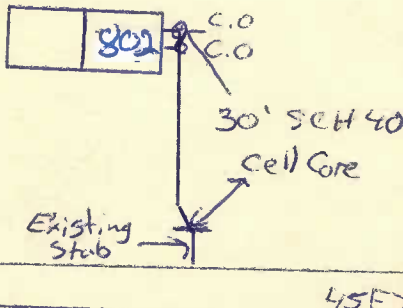 C.O
802
C.O
30' SCH 40
Cell Core
Existing
Stub